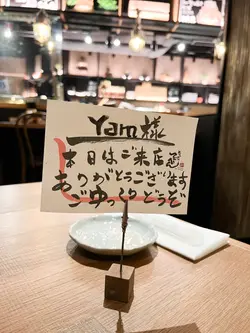 Yam様
本日はご来店
ありがとうございます
ごゆっくりどうぞ